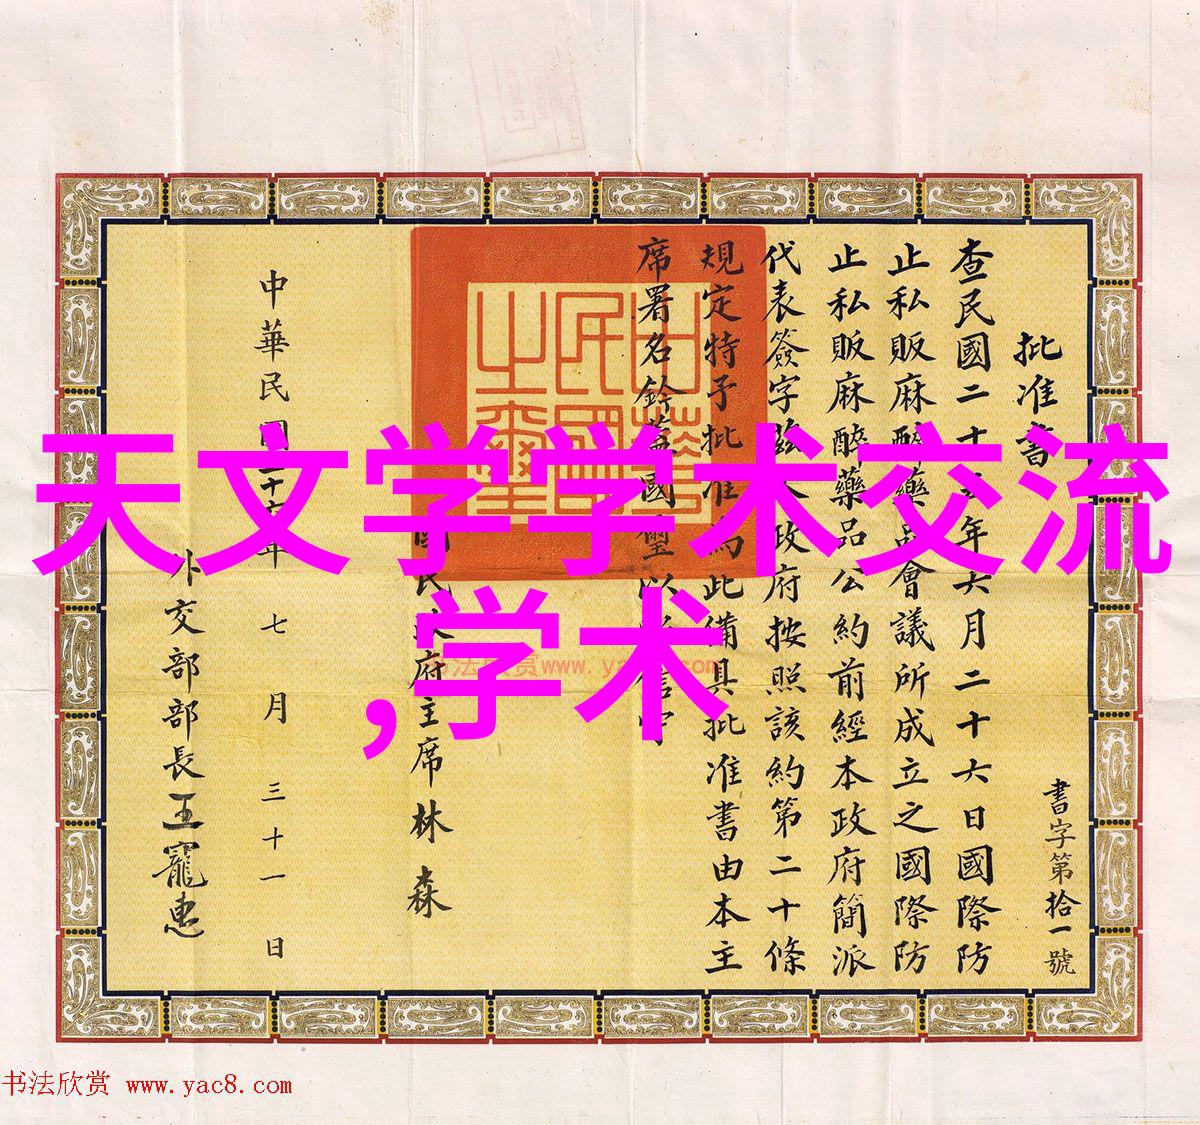 天文学学术交流
,学术
批准書
書字第拾一號
查民國二十五年六月二十六日國際防
止私販麻醉藥品會議所成立之國際防
止私販麻醉藥品公約前經本政府簡派
代表簽字茲本政府按照該約第二十條
規定特予批准為此備具批准書由本主
席署名鈐蓋國璽以昭信守
中華民國之璽
國民政府主席林森
中華民國二十六年七月三十一日
外交部部長王寵惠
书法欣赏www.yac8.com
书法欣赏 www.yac8.com